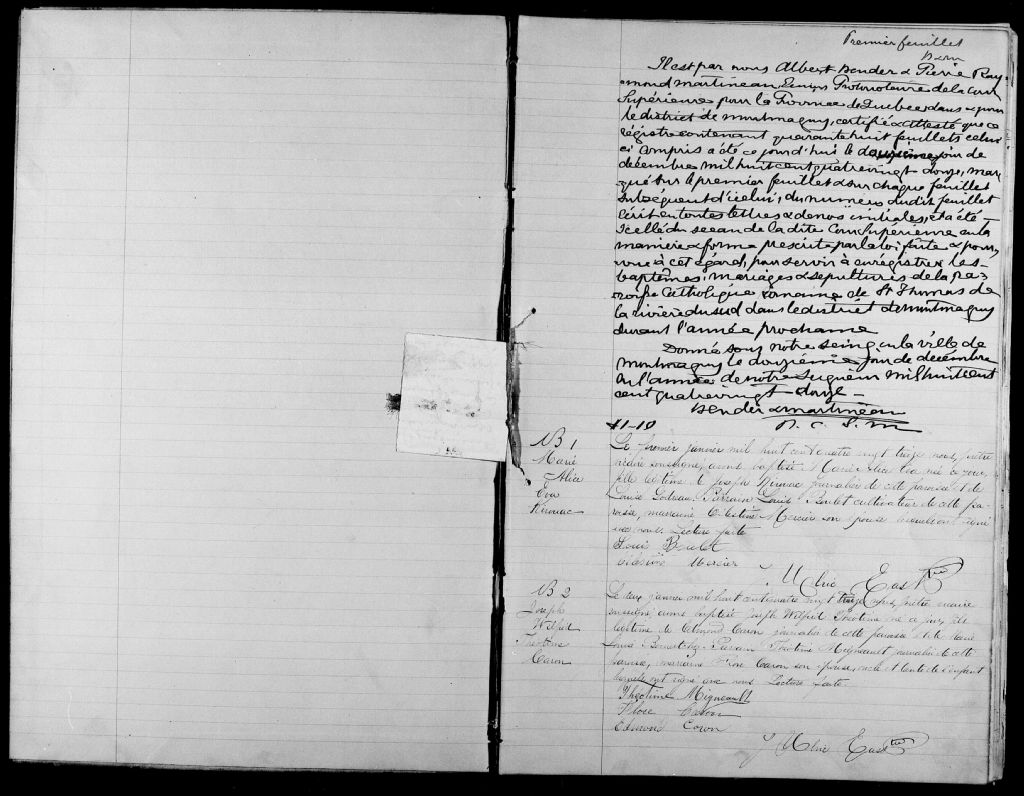 Premier feuillet
Il est par nous Albert Bender & Pierre Ray-
mond Martineau, Protonotaire de la Cour
Supérieure pour la Province de Québec dans & pour
le district de Montmagny, certifié & attesté que ce
régistre contenant quarante huit feuillets celui
ci compris a été ce jourd'hui le douzième jour de
décembre mil huit cent quatrevingt douze, mar
qué sur le premier feuillet & sur chaque feuillet
subséquent d'icelui, du numéro dudit feuillet
écrit en toutes lettres & de nos initiales, et a été
scellé du sceau de la dite Cour Supérieure en la
manière & forme prescrite par la loi faite & pour
vue à cet égard, pour servir à enrégistrer les
baptêmes, mariages & sépultures de la Pa-
roisse Catholique romaine de St Thomas de
la rivière du sud dans le district de Montmagny
durant l'année prochaine
Donné sous notre seing, en la ville de
Montmagny le douzième jour de décembre
en l'année de notre Seigneur mil huit cent
cent quatrevingt douze
Bender & Martineau
P. C. S. M
B 1
Marie
Alice
Eva
Kirouac
Le premier janvier mil huit cent quatre vingt treize nous, prêtre
vicaire soussigné, avons baptisé Marie Alice Eva née ce jour,
fille légitime de Joseph Kirouac journalier de cette paroisse et de
Louise Parrain Louis Boulet cultivateur de cette pa-
roisse, marraine Célestine Mercier son épouse lesquels ont signé
avec nous. Lecture faite
Louis Boulet
Célestine Mercier
B 2
Joseph
Wilfrid
Théotime
Caron
Le deux janvier mil huit cent quatre vingt treize nous, prêtre vicaire
soussigné, avons baptisé Joseph Wilfrid Théotime né ce jour, fils
légitime de Edmond Caron journalier de cette paroisse et de Marie
Parrain Théotime Migneault journalier de cette
paroisse, marraine Rose Caron son épouse, oncle et tante de l'enfant
lesquels ont signé avec nous Lecture faite.
Théotime Migneault
Rose Caron
Edmond Caron